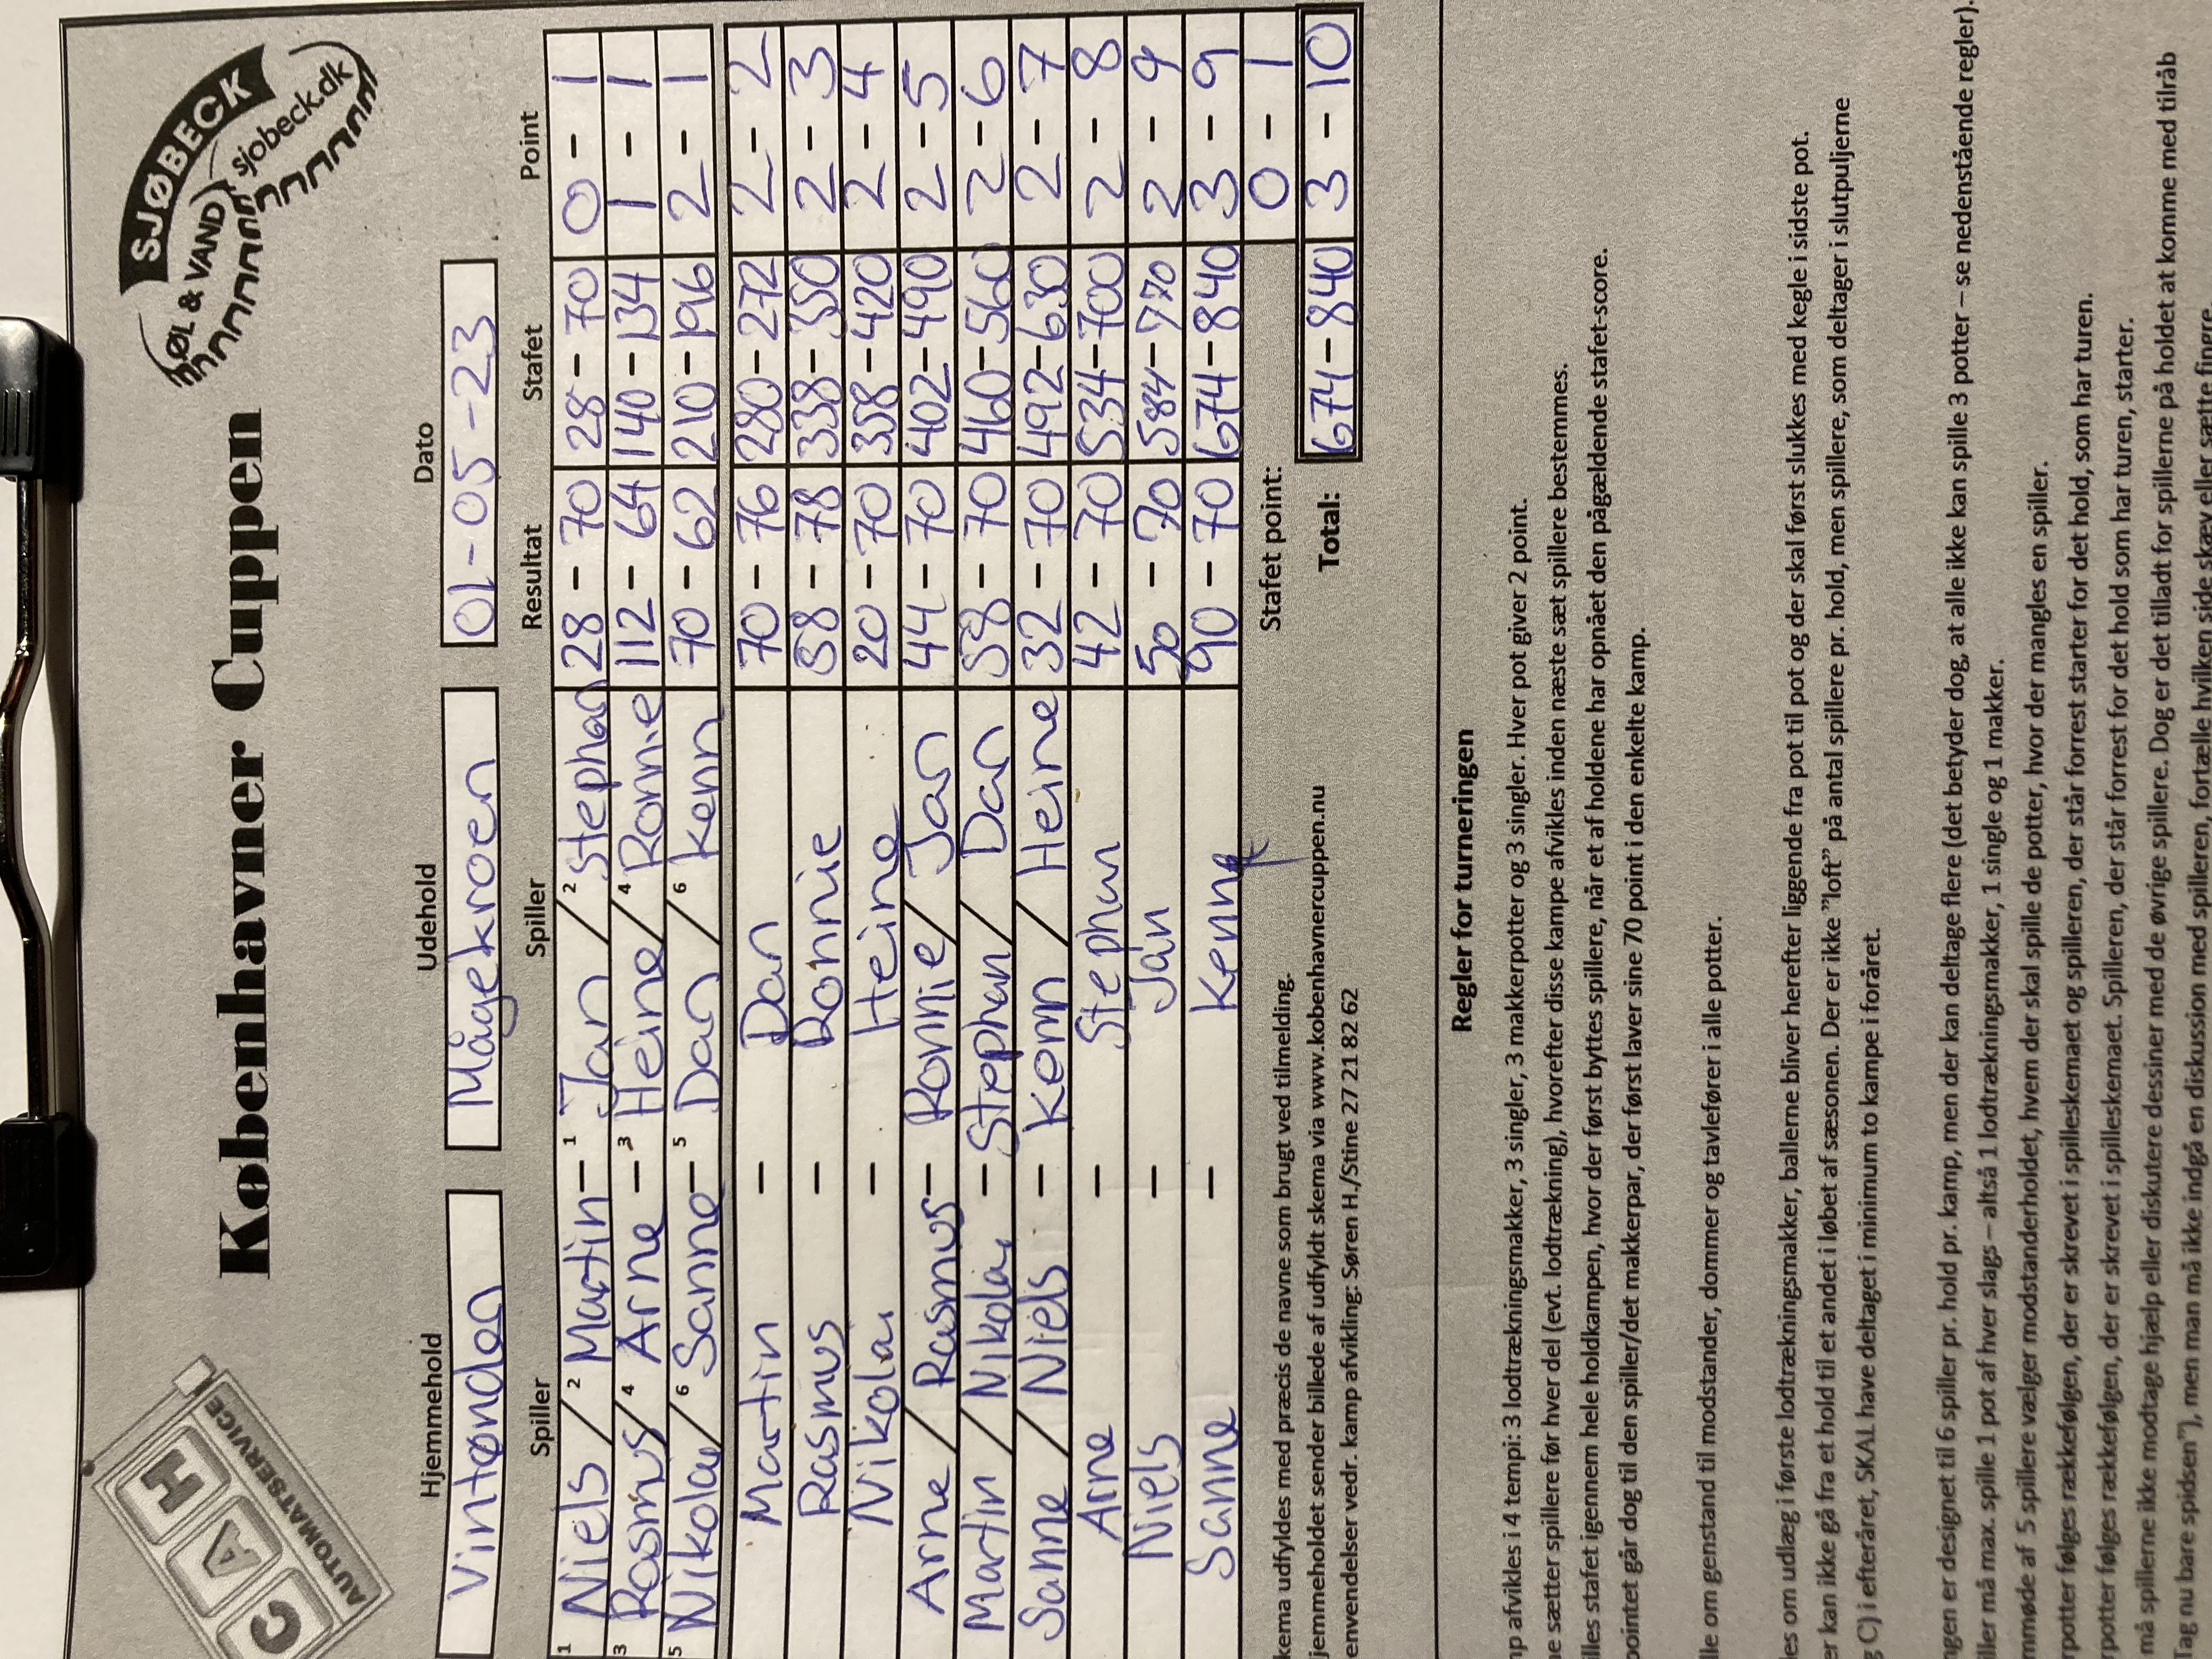 CAH
AUTOMATSERVICE
Københavner Cuppen
SJØBECK
ØL & VAND
sjobeck.dk
Hjemmehold Udehold Dato
Vintønden Mågekroen 01-05-23
Spiller Spiller Resultat Stafet Point
1 Niels / 2 Martin - 1 Jan / 2 Stephan 28 - 70 28 - 70 0 - 1
3 Rasmus / 4 Arne - 3 Heine / 4 Ronnie 112 - 64 140 - 134 1 - 1
5 Nikolai / 6 Sanne - 5 Dan / 6 Kenn 70 - 62 210 - 196 2 - 1
Martin - Dan 70 - 76 280 - 272 2 - 2
Rasmus - Ronnie 58 - 78 338 - 350 2 - 3
Nikolai - Heine 20 - 70 358 - 420 2 - 4
Arne / Rasmus - Ronnie / Jan 44 - 70 402 - 490 2 - 5
Martin / Nikolai - Stephan / Dan 58 - 70 460 - 560 2 - 6
Sanne / Niels - Kenn / Heine 32 - 70 492 - 630 2 - 7
Arne - Stephan 42 - 70 534 - 700 2 - 8
Niels - Jan 50 - 70 584 - 770 2 - 9
Sanne - Kenn 90 - 70 674 - 840 3 - 9
Stafet point: 0 - 1
Total: 674 - 840 3 - 10
udfyldes med præcis de navne som brugt ved tilmelding.
sender billede af udfyldt skema via www.kobenhavnercuppen.nu
vedr. kamp afvikling: Søren H./Stine 27 21 82 62
Regler for turneringen
afvikles i 4 tempi: 3 lodtrækningsmakker, 3 singler, 3 makkerpotter og 3 singler. Hver pot giver 2 point.
sætter spillere før hver del (evt. lodtrækning), hvorefter disse kampe afvikles inden næste sæt spillere bestemmes.
stafet igennem hele holdkampen, hvor der først byttes spillere, når et af holdene har opnået den pågældende stafet-score.
går dog til den spiller/det makkerpar, der først laver sine 70 point i den enkelte kamp.
om genstand til modstander, dommer og tavlefører i alle potter.
om udlæg i første lodtrækningsmakker, ballerne bliver herefter liggende fra pot til pot og der skal først slukkes med kegle i sidste pot.
kan ikke gå fra et hold til et andet i løbet af sæsonen. Der er ikke ”loft” på antal spillere pr. hold, men spillere, som deltager i slutpuljerne
C) i efteråret, SKAL have deltaget i minimum to kampe i foråret.
er designet til 6 spiller pr. hold pr. kamp, men der kan deltage flere (det betyder dog, at alle ikke kan spille 3 potter – se nedenstående regler).
må max. spille 1 pot af hver slags – altså 1 lodtrækningsmakker, 1 single og 1 makker.
af 5 spillere vælger modstanderholdet, hvem der skal spille de potter, hvor der mangles en spiller.
følges rækkefølgen, der er skrevet i spilleskemaet og spilleren, der står forrest starter for det hold, som har turen.
følges rækkefølgen, der er skrevet i spilleskemaet. Spilleren, der står forrest for det hold som har turen, starter.
må spillerne ikke modtage hjælp eller diskutere dessiner med de øvrige spillere. Dog er det tilladt for spillerne på holdet at komme med tilråb
nu bare spidsen”), men man må ikke indgå en diskussion med spilleren, fortælle hvilken side skæv eller sætte fingre